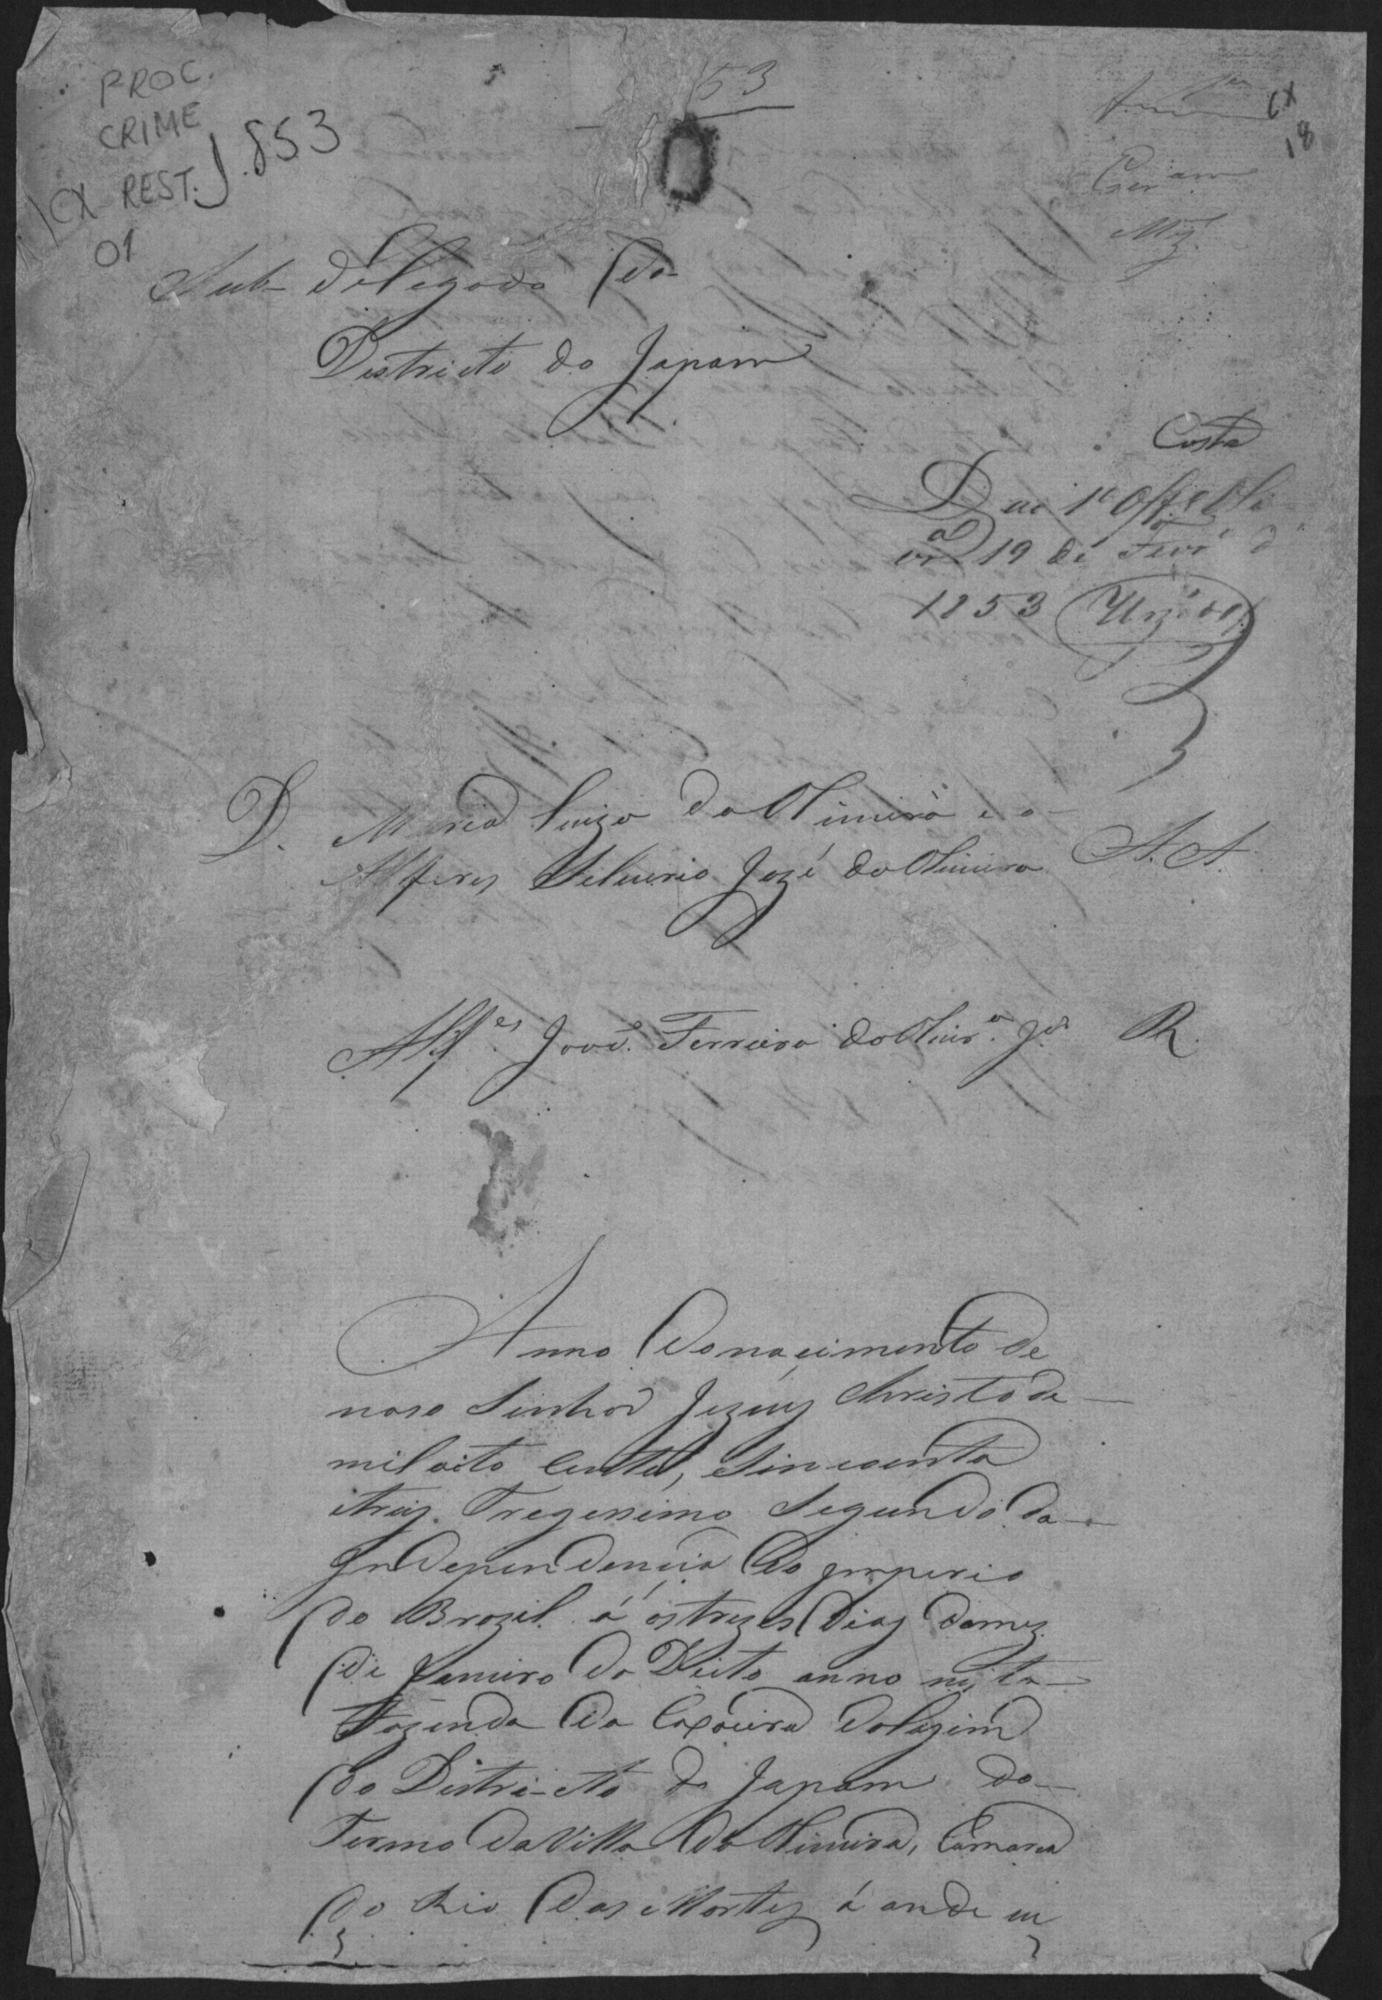 PROC.
CRIME
CX REST. J.853
01
53
CX
18
Sub delegado do
Districto do Japam
Costa
D ao 1º Off
em 19 de Fevrº d
1853
D. Maria Luiza de Oliveira e o
Alferes Silverio Jozé de Oliveira A.A.
Alfes. José Ferreira de Olivrª. Jor R.
Anno do nacimento de
noso Sinhor Jezuz Christo de
mil oito cento, Sincoenta
itreiz. Tregessimo Segundo da
Independencia do Imperio
do Brazil. á os trezes Diaz domez
de Janeiro do Dito anno nesta
Fazenda da Caxoeira
do Districto do Japam do
Termo da Villa da Oliveira, Comarca
do Rio das Mortez á onde eu